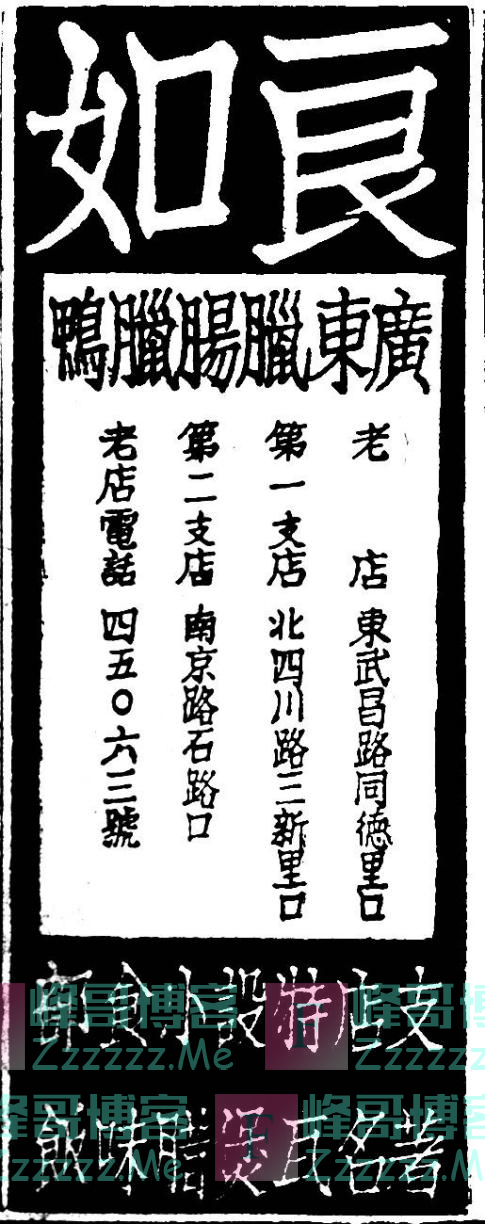 良如
廣東臘腸臘鴨
老店 東武昌路同德里口
第一支店 北四川路三新里口
第二支店 南京路石路口
老店電話 四五〇六三號
支店特設小食部
著名瓦煲腊味飯
峰哥博客
Zzzzzz.Me
峰哥博客
Zzzzzz.Me
峰哥博客
Zzzzzz.Me
峰哥博客
Zzzzzz.Me